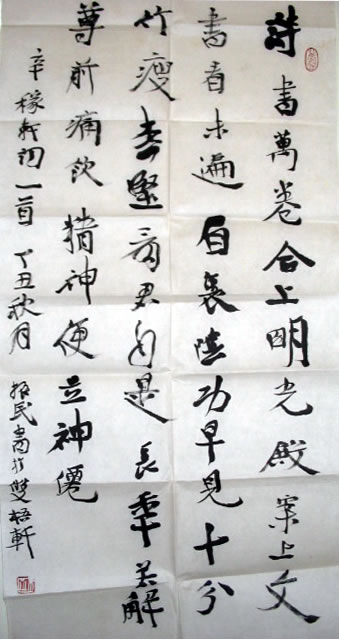 詩書萬卷合上明光殿案上文
書看未遍眉裏陰功早見十分
竹瘦松堅看君自是長年若解
尊前痛飲精神便是神僊
辛稼軒詞一首 丁丑秋月 振民書於雙梧軒